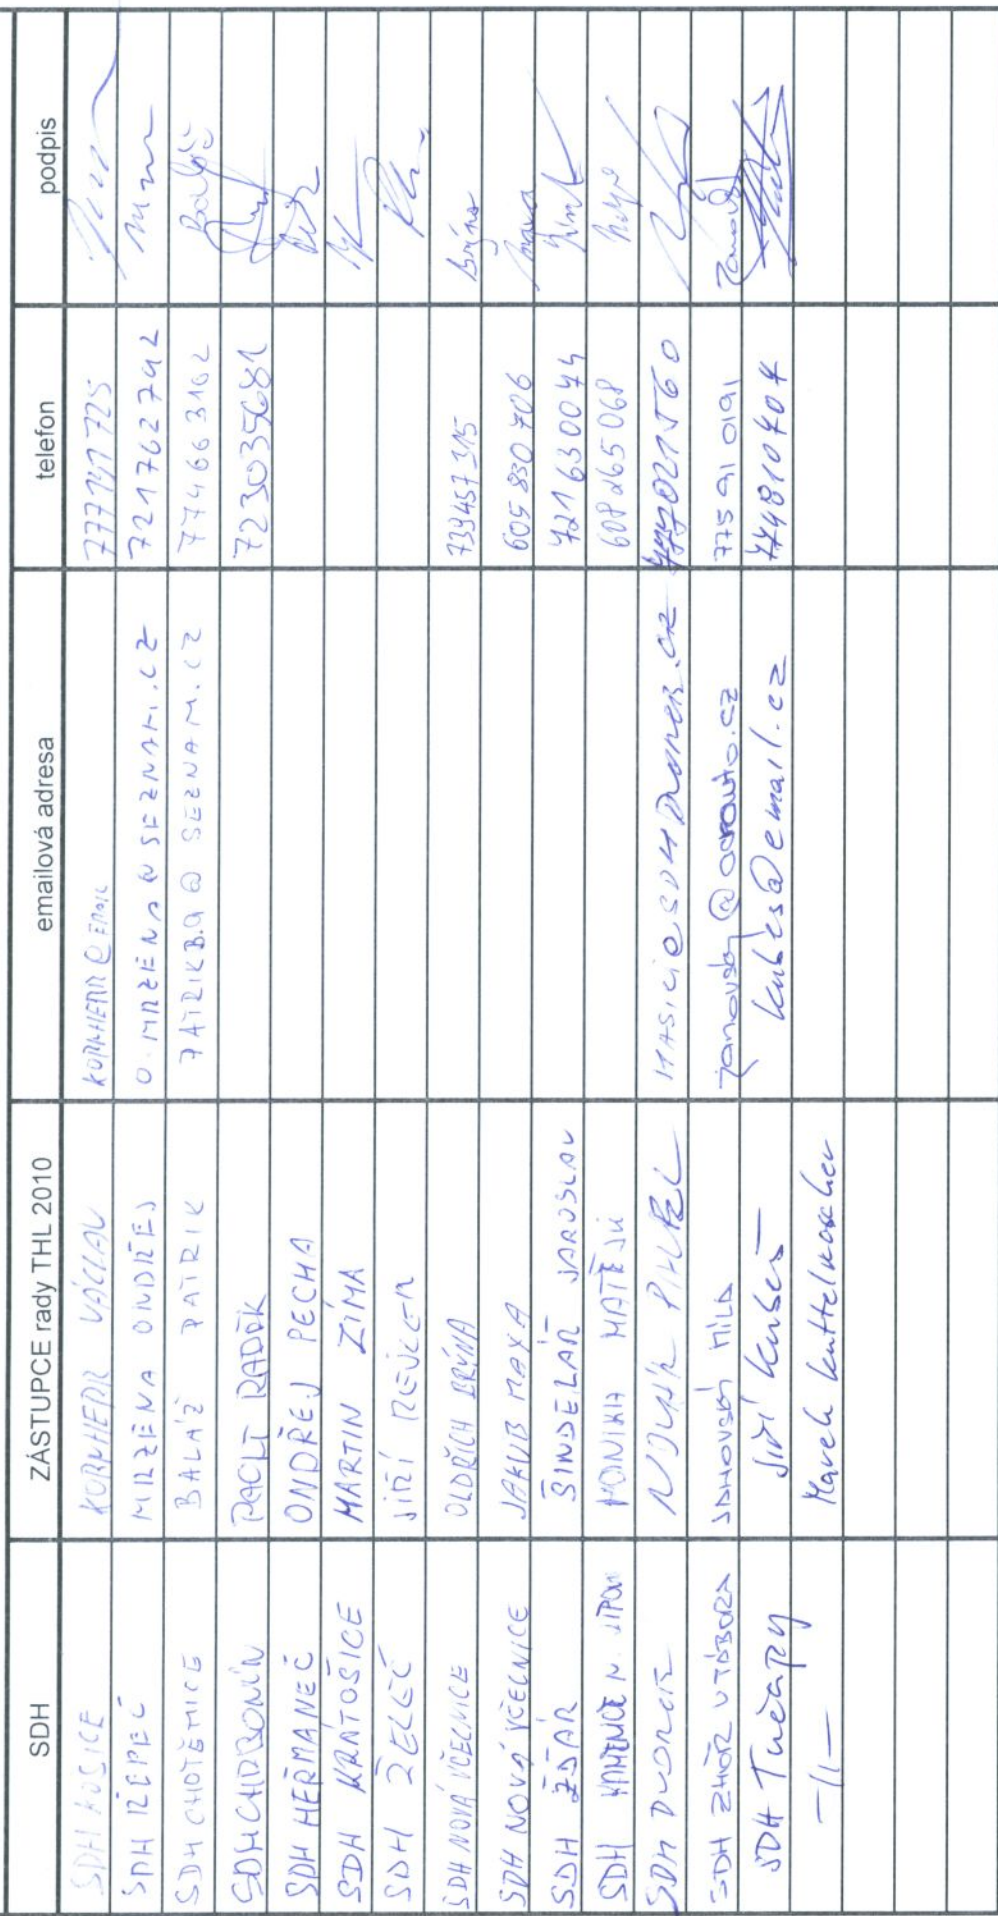 SDH ZÁSTUPCE rady THL 2010 emailová adresa telefon podpis
SDH KOŠICE KORNHERR VÁCLAV KORNHERR@EMAIL 777 727 725
SDH ŘEPEČ MRZENA ONDŘEJ O.MRZENA@SEZNAM.CZ 721762742
SDH CHOTĚMICE BALÁŽ PATRIK PATRIKB.@SEZNAM.CZ 774663102 Baláž
SDH CHRBONÍN RADEK 723035681
SDH HEŘMANEČ ONDŘEJ PECHA
SDH KRÁTOŠICE MARTIN ZÍMA
SDH ŽELEČ JIŘÍ REJLEK
SDH NOVÁ VČELNICE OLDŘICH BRÝNA 739457315 Brýna
SDH NOVÁ VČELNICE JAKUB MAXA 605 830 706 Maxa
SDH ŽĎÁR ŠINDELÁŘ JAROSLAV 721630044
SDH KAMENICE N. LIPOU MONIKA MATĚJŮ 608265068
SDH DVORCE NOVÁK PAVEL
SDH ZHOŘ U TÁBORA JANOVSKÝ MÍLA janovsky@acrauto.cz 775910191
SDH Tučapy Jiří Kubeš kubes@email.cz 774810404
-||- Marek Kuttelwascher